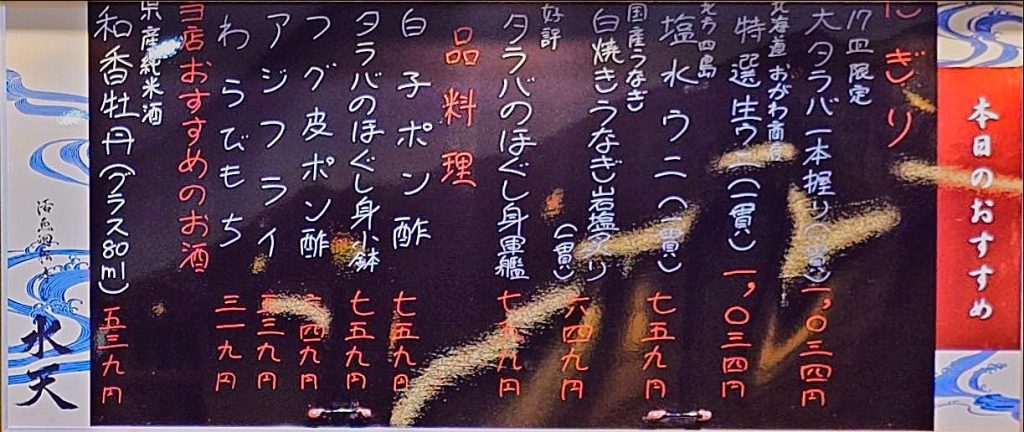 本日のおすすめ
にぎり
17皿限定
大タラバ一本握り(一貫)一、〇三四円
北海道おがわ商店
特選生ウニ(一貫)一、〇三四円
北方四島
塩水ウニ(一貫)七五九円
国産うなぎ
白焼きうなぎ岩塩炙り(一貫)六四九円
好評
タラバのほぐし身軍艦 七五九円
一品料理
白子ポン酢 七五九円
タラバのほぐし身小鉢 七五九円
フグ皮ポン酢 六四九円
アジフライ 五三九円
わらびもち 三一九円
当店おすすめのお酒
県産純米酒
和香牡丹(グラス80ml)五三九円
水天